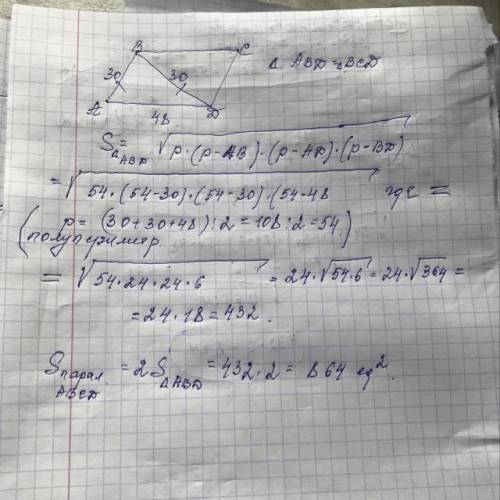 B C
△ ABD = △BCD
30 30
A D
48
S△ABD = √p·(p-AB)·(p-AD)·(p-BD)
= √54·(54-30)·(54-30)·(54-48 где =
(p = (30+30+48):2 = 108:2 = 54)
полупериметр
= √54·24·24·6 = 24·√54·6 = 24·√364 =
= 24·18 = 432.
Sпарал. ABCD = 2S△ABD = 432·2 = 864 ед².